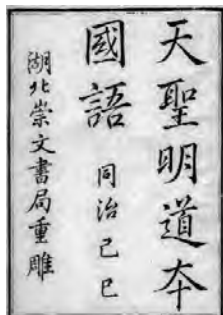 天聖明道夲
國語 同治己巳
湖北崇文書局重雕